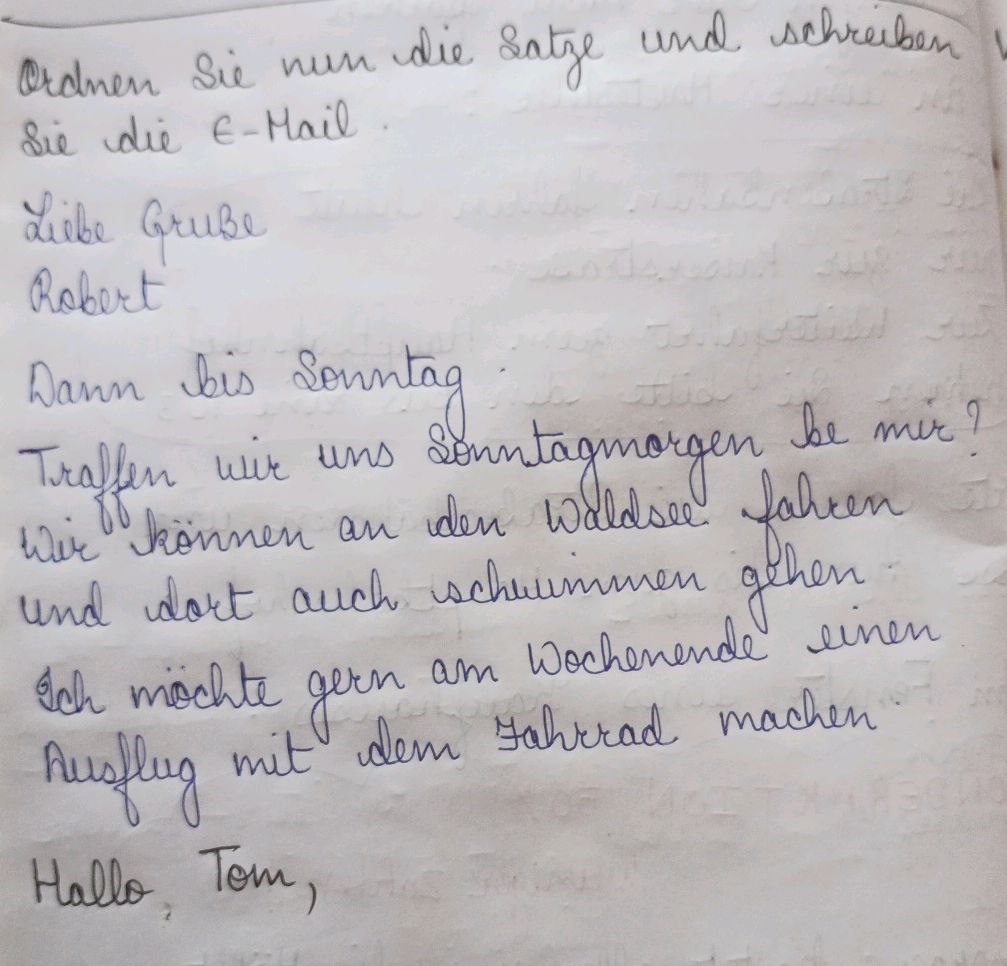 Ordnen Sie nun die Satze und schreiben
Sie die E-Mail.
Liebe Gruße
Robert
Dann bis Sonntag.
Traffen wir uns Sonntagmorgen be mir?
Wir können an den Waldsee fahren
und dort auch schwimmen gehen.
Ich möchte gern am Wochenende einen
Ausflug mit dem Fahrrad machen.
Hallo, Tom,